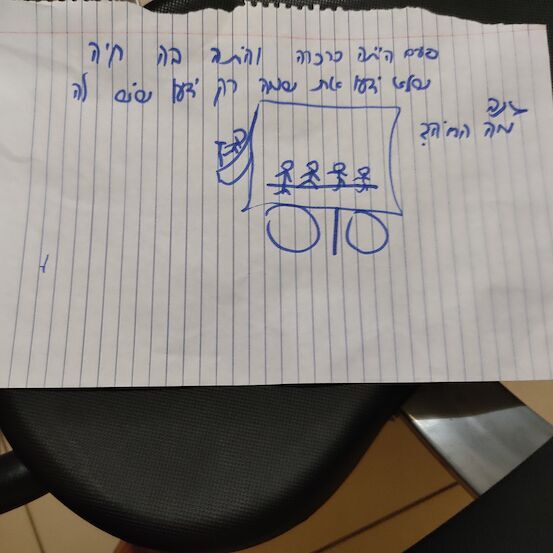 פעם היתה כרכרה והיתה בה חיה
שלא ידעו את שמה רק ידעו ששם לה
מה החיה?